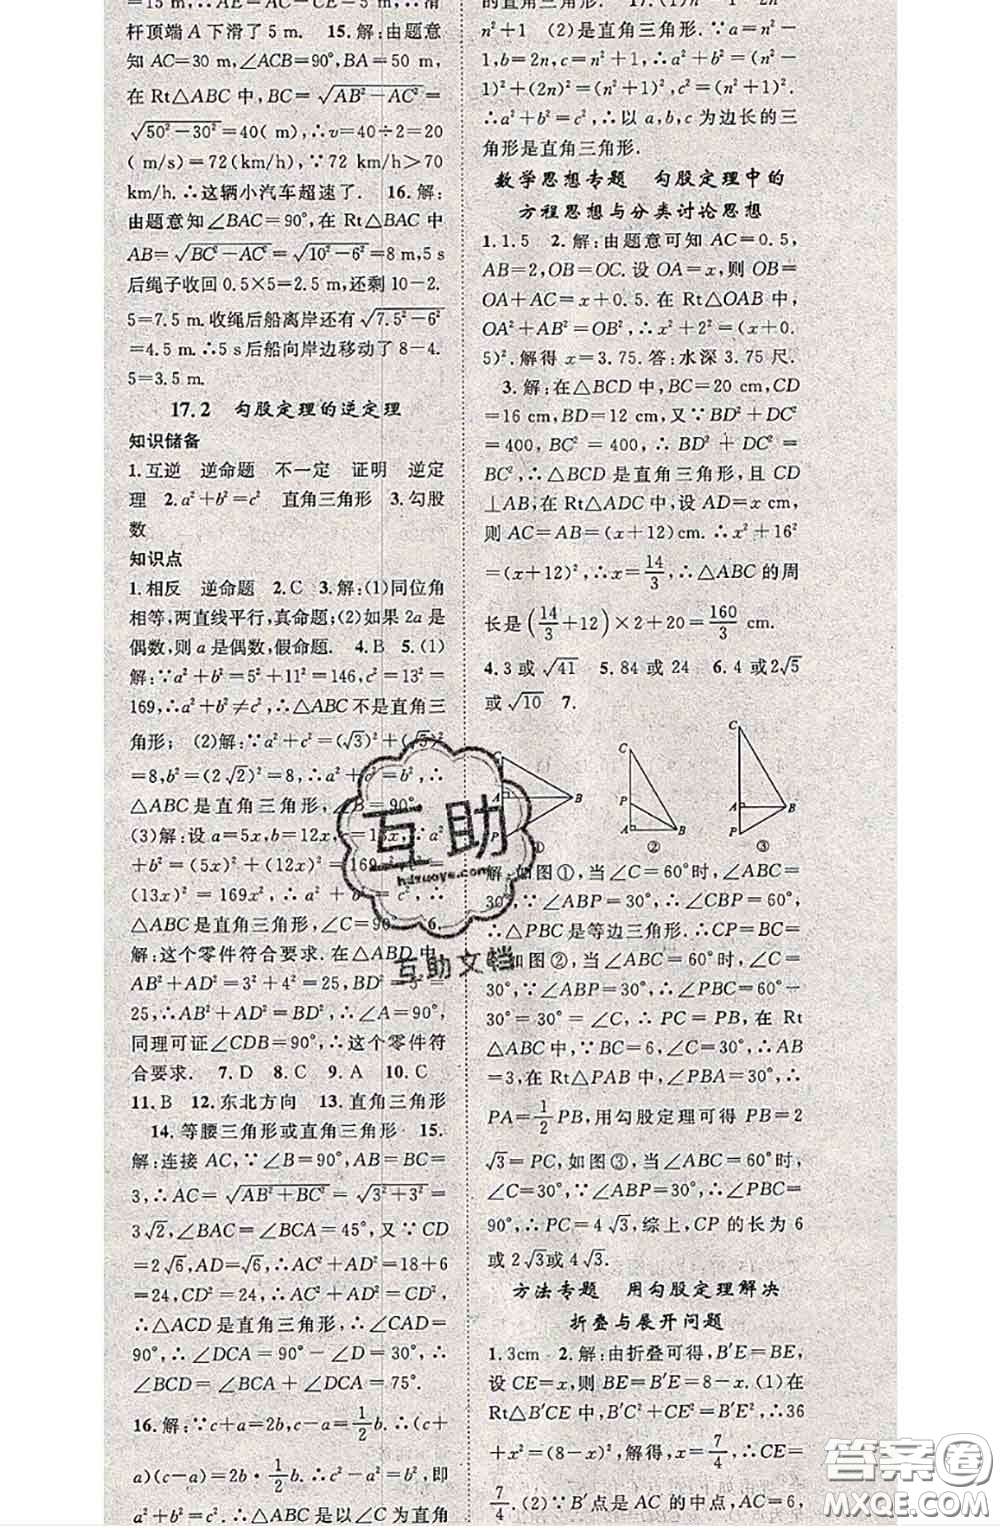 =15 m,∴AE=AC-CE=5 m.∴滑
杆顶端 A 下滑了 5 m. 15.解:由题意
知 AC=30 m,∠ACB=90°,BA=50 m,
在 Rt△ABC 中,BC=√(AB²-AC²)=
√(50²-30²)=40( m),∴v=40÷2=20
(m/s)=72(km/h),∵72(km/h)>70
km/h.∴这辆小汽车超速了. 16.解:
由题意知∠BAC=90°,在 Rt△BAC 中
AB=√(BC²-AC²)=√(10²-6²)=8 m,5 s
后绳子收回 0.5×5=2.5 m,还剩 10-2.
5=7.5 m.收绳后船离岸还有√(7.5²-6²)
=4.5 m.∴5 s 后船向岸边移动了 8-4.
5=3.5 m.
17.2 勾股定理的逆定理
知识储备
1.互逆 逆命题 不一定 证明 逆定
理 2.a²+b²=c² 直角三角形 3.勾股
数
知识点
1.相反 逆命题 2.C 3.解:(1)同位角
相等,两直线平行,真命题;(2)如果 2a 是
偶数,则 a 是偶数,假命题. 4.B 5.(1)
解:∵a²+b²=5²+11²=146,c²=13²=
169,∴a²+b²≠c²,∴△ABC 不是直角三
角形; (2)解:∵a²+c²=(√3)²+(√5)²
=8,b²=(2√2)²=8,∴a²+c²=b²,∴
△ABC 是直角三角形,∠B=90°
(3)解:设 a=5x,b=12x,c=13x,∵a²
+b²=(5x)²+(12x)²=169x²,c²=
(13x)²=169x²,∴a²+b²=c²,∴
△ABC 是直角三角形,∠C=90° 6.
解:这个零件符合要求.在△ABD 中
AB²+AD²=3²+4²=25,BD²=5²=
25,∴AB²+AD²=BD²,∴∠A=90°,
同理可证∠CDB=90°,∴这个零件符
合要求. 7.D 8.C 9.A 10.C
11.B 12.东北方向 13.直角三角形
14.等腰三角形或直角三角形 15.
解:连接 AC,∵∠B=90°,AB=BC=
3,∴AC=√(AB²+BC²)=√(3²+3²)=
3√2,∠BAC=∠BCA=45°,又∵CD
=2√6,AD=√6,∴AC²+AD²=18+6
=24,CD²=24,∴AC²+AD²=CD²,
∴△ACD 是直角三角形,∴∠CAD=
90°,∴∠ACD=90°-∠D=30°,∴
∠BCD=∠BCA+∠DCA=75°.
16.解:∵c+a=2b,c-a=1/2b.∴(c+
a)(c-a)=2b·1/2b.∴c²-a²=b²,即
a²+b²=c²,∴△ABC 是以∠C 为直角
的直角三角形. 17.(1)n²-1 2n
n²+1 (2)是直角三角形.∵a=n²-
1,b=2n,c=n²+1,∴a²+b²=(n²-
1)²+(2n)²=(n²+1)²,c²=(n²+1)².
∴a²+b²=c²,∴以 a,b,c 为边长的三
角形是直角三角形.
数学思想专题 勾股定理中的
方程思想与分类讨论思想
1.1.5 2.解:由题意可知 AC=0.5,
AB=2,OB=OC.设 OA=x,则 OB=
OA+AC=x+0.5.在 Rt△OAB 中,
OA²+AB²=OB²,∴x²+2²=(x+0.
5)².解得 x=3.75.答:水深 3.75 尺.
3.解:在△BCD 中,BC=20 cm,CD
=16 cm,BD=12 cm,又∵BD²+DC²
=400,BC²=400,∴BD²+DC²=
BC²,∴△BCD 是直角三角形,且 CD
⊥AB,在 Rt△ADC 中,设 AD=x cm,
则 AC=AB=(x+12)cm.∴x²+16²
=(x+12)²,∴x=14/3,∴△ABC 的周
长是(14/3+12)×2+20=160/3 cm.
4.3 或√41 5.84 或 24 6.4 或2√5
或√10 7.
C A B P ①
C P A B ②
C A B P ③
解:如图①,当∠C=60°时,∠ABC=
30°,∵∠ABP=30°,∴∠CBP=60°,
∴△PBC 是等边三角形.∴CP=BC=
6,如图②,当∠ABC=60°时,∠C=
30°,∵∠ABP=30°,∴∠PBC=60°-
30°=30°=∠C,∴PC=PB,在 Rt
△ABC 中,∵BC=6,∠C=30°,∴AB
=3,在 Rt△PAB 中,∠PBA=30°,∴
PA=1/2PB,用勾股定理可得 PB=2
√3=PC,如图③,当∠ABC=60°时,
∠C=30°,∵∠ABP=30°,∴∠PBC=
90°,∴PC=4√3,综上,CP 的长为 6
或 2√3或 4√3.
方法专题 用勾股定理解决
折叠与展开问题
1.3cm 2.解:由折叠可得,B′E=BE,
设 CE=x,则 BE=B′E=8-x.(1)在
Rt△B′CE 中,B′C²+CE²=B′E²,∴36
+x²=(8-x)²,解得,x=7/4,∴CE=
7/4.(2)∵B′点是 AC 的中点,AC=6,
互助
hdzuoye.com
互助文档
答案圈
MXQE.COM